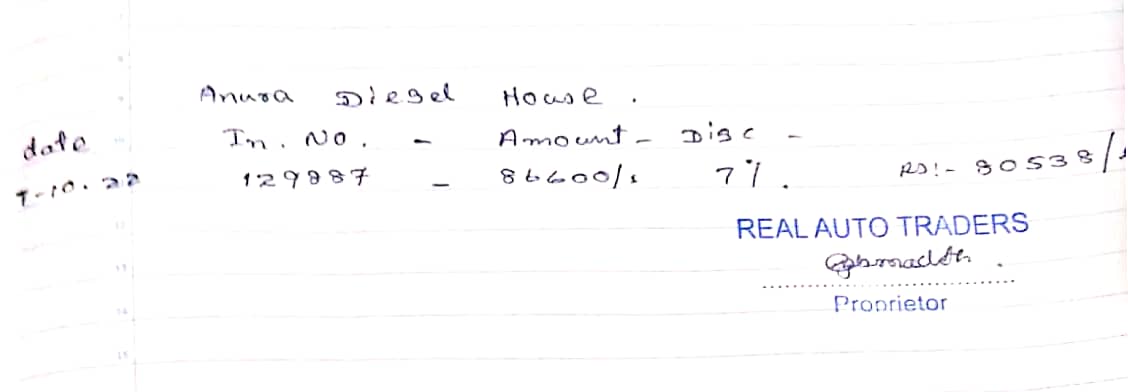 Anura Diesel House.
In. No. - Amount - Disc -
date
9-10.22 129887 - 86600/s 7%. RS:- 80538/s
REAL AUTO TRADERS
Proprietor